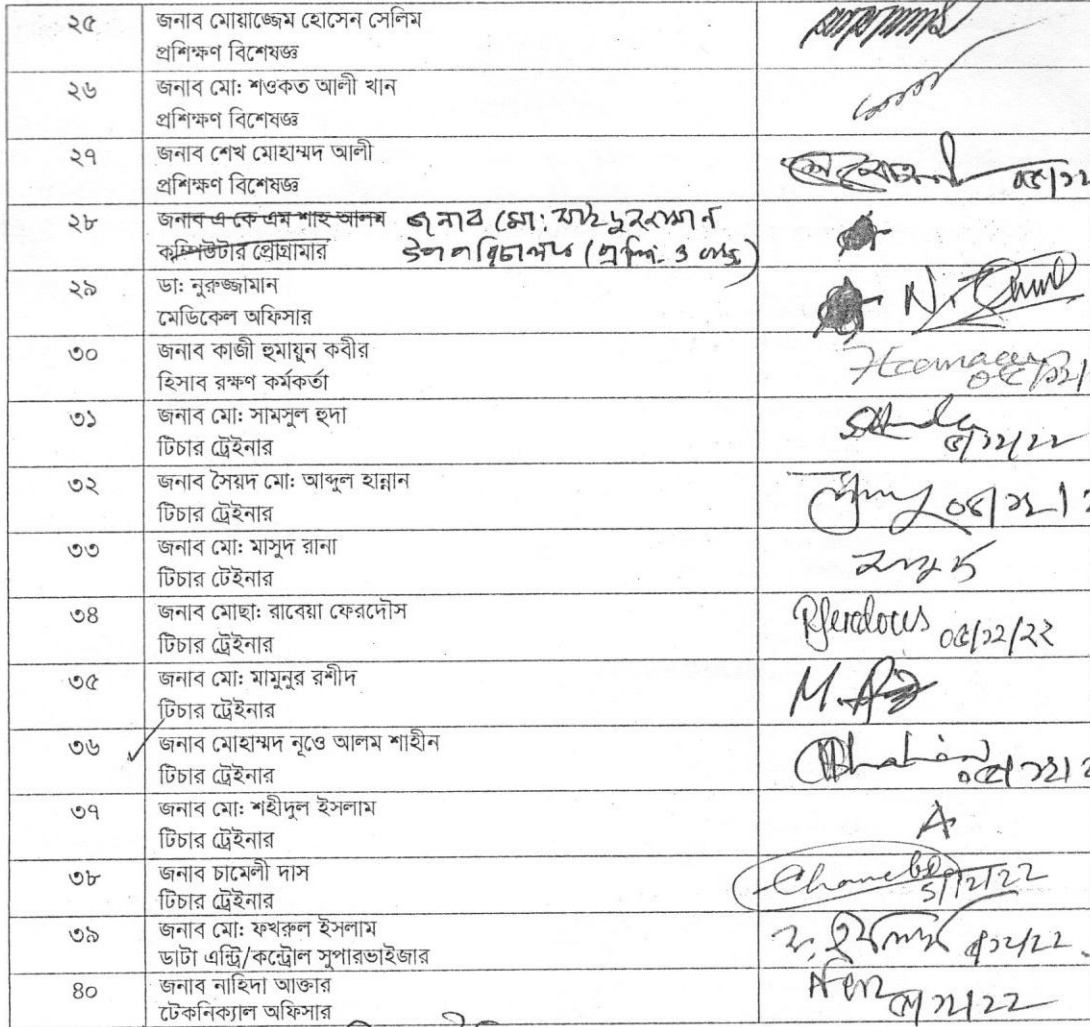 ২৫ জনাব মোয়াজ্জেম হোসেন সেলিম
প্রশিক্ষণ বিশেষজ্ঞ
২৬ জনাব মো: শওকত আলী খান
প্রশিক্ষণ বিশেষজ্ঞ
২৭ জনাব শেখ মোহাম্মদ আলী
প্রশিক্ষণ বিশেষজ্ঞ
২৮ জনাব এ কে এম শাহ আলম জনাব মো:
কম্পিউটার প্রোগ্রামার
২৯ ডা: নুরুজ্জামান
মেডিকেল অফিসার
৩০ জনাব কাজী হুমায়ুন কবীর
হিসাব রক্ষণ কর্মকর্তা
৩১ জনাব মো: সামসুল হুদা
টিচার ট্রেইনার ৫/১২/২২
৩২ জনাব সৈয়দ মো: আব্দুল হান্নান
টিচার ট্রেইনার
৩৩ জনাব মো: মাসুদ রানা মাসুদ
টিচার টেইনার
৩৪ জনাব মোছা: রাবেয়া ফেরদৌস RFerdous ০৫/১২/২২
টিচার ট্রেইনার
৩৫ জনাব মো: মামুনুর রশীদ
টিচার ট্রেইনার
৩৬ জনাব মোহাম্মদ নূওে আলম শাহীন
টিচার ট্রেইনার
৩৭ জনাব মো: শহীদুল ইসলাম A
টিচার ট্রেইনার
৩৮ জনাব চামেলী দাস
টিচার ট্রেইনার 5/12/22
৩৯ জনাব মো: ফখরুল ইসলাম
ডাটা এন্ট্রি/কন্ট্রোল সুপারভাইজার ৫/১২/২২
৪০ জনাব নাহিদা আক্তার
টেকনিক্যাল অফিসার ৫/১২/২২